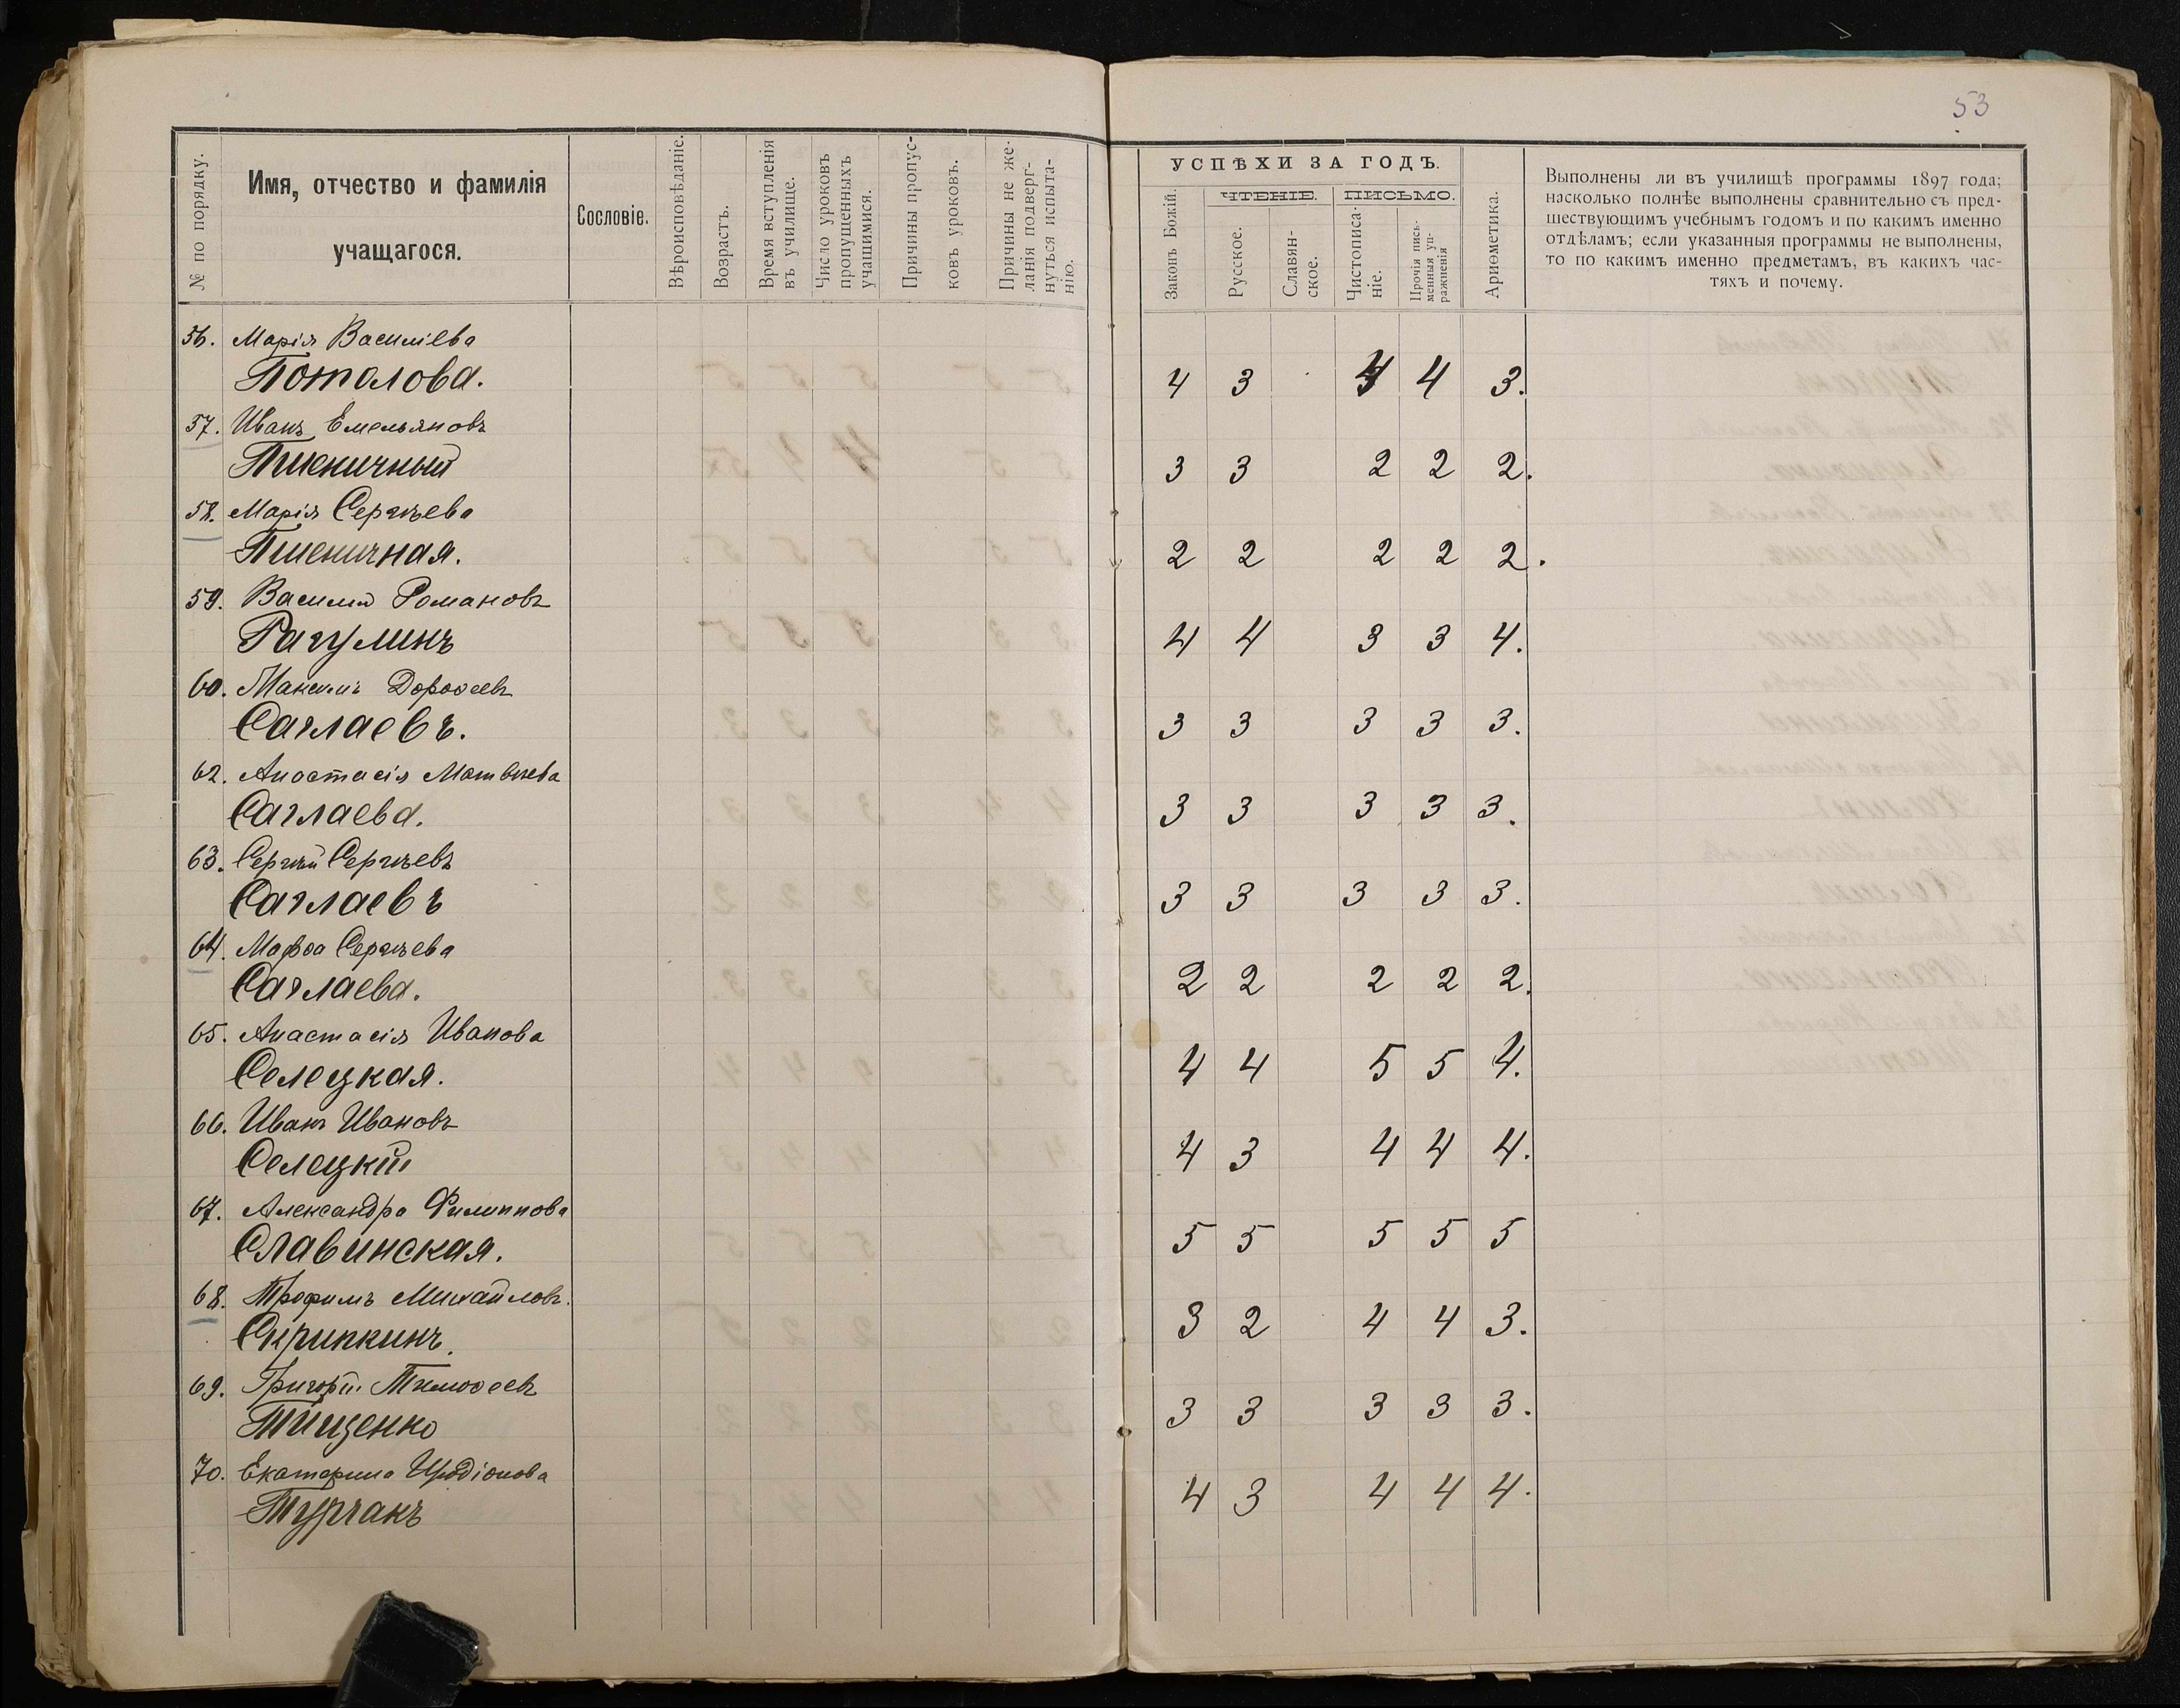 53
№ по порядку.
Имя, отчество и фамилія
учащагося.
Сословіе.
Вѣроисповѣданіе.
Возрастъ.
Время вступленія
въ училище.
Число уроковъ
пропущенныхъ
учащимися.
Причины пропус-
ковъ уроковъ.
Причины не же-
ланія подверг-
нуться испыта-
нію.
УСПѢХИ ЗА ГОДЪ.
Законъ Божій.
ЧТЕНІЕ.
Русское.
Славян-
ское.
ПИСЬМО.
Чистописа-
ніе.
Прочія пись-
менныя уп-
ражненія
Ариѳметика.
Выполнены ли въ училищѣ программы 1897 года;
насколько полнѣе выполнены сравнительно съ пред-
шествующимъ учебнымъ годомъ и по какимъ именно
отдѣламъ; если указанныя программы не выполнены,
то по какимъ именно предметамъ, въ какихъ час-
тяхъ и почему.
56. Марія Василіева
Потолова. 4 3 4 4 3.
57. Иванъ Емельяновъ
Пшеничный 3 3 2 2 2.
58. Марія Сергѣева
Пшеничная. 2 2 2 2 2.
59. Василій Романовъ
Рагулинъ 4 4 3 3 4.
60. Максимъ Дороѳеевъ
Саглаевъ. 3 3 3 3 3.
62. Анастасія Матвѣева
Саглаева. 3 3 3 3 3.
63. Сергѣй Сергѣевъ
Саглаевъ 3 3 3 3 3.
64. Марѳа Сергѣева
Саглаева. 2 2 2 2 2.
65. Анастасія Иванова
Селецкая. 4 4 5 5 4.
66. Иванъ Ивановъ
Селецкій 4 3 4 4 4.
67. Александра Филиппова
Славинская. 5 5 5 5 5
68. Трофимъ Михайловъ.
Скрипкинъ. 3 2 4 4 3.
69. Григорій Тимоѳеевъ
Тищенко 3 3 3 3 3.
70. Екатерина Иродіонова
Турчакъ 4 3 4 4 4.